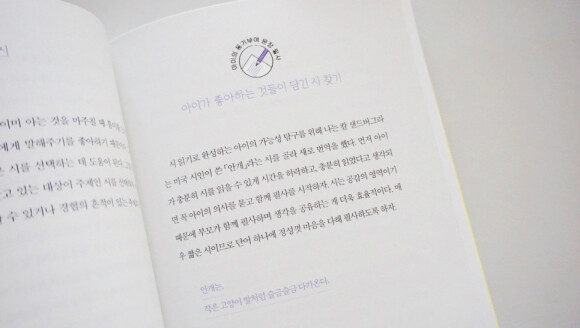 시
이미 아는 것을 마주할 때 흥미를
에게 말해주기를 좋아하기 때문이
은 시를 선택하는 데 도움이 된다. 그
고 있는 대상이 주제인 시를 선택하
수 있거나 경험의 흔적이 있는
아이의 동기부여 문장 필사
아이가 좋아하는 것들이 담긴 시 찾기
시 읽기로 완성하는 아이의 가능성 탐구를 위해 나는 칼 샌드버그라
는 미국 시인이 쓴 「안개」라는 시를 골라 새로 번역을 했다. 먼저 아이
가 충분히 시를 읽을 수 있게 시간을 허락하고, 충분히 읽었다고 생각되
면 꼭 아이의 의사를 묻고 함께 필사를 시작하자. 시는 공감의 영역이기
때문에 부모가 함께 필사하며 생각을 공유하는 게 더욱 효율적이다. 매
우 짧은 시이므로 단어 하나에 정성껏 마음을 다해 필사하도록 하자.
안개는,
작은 고양이 발처럼 슬금슬금 다가온다.